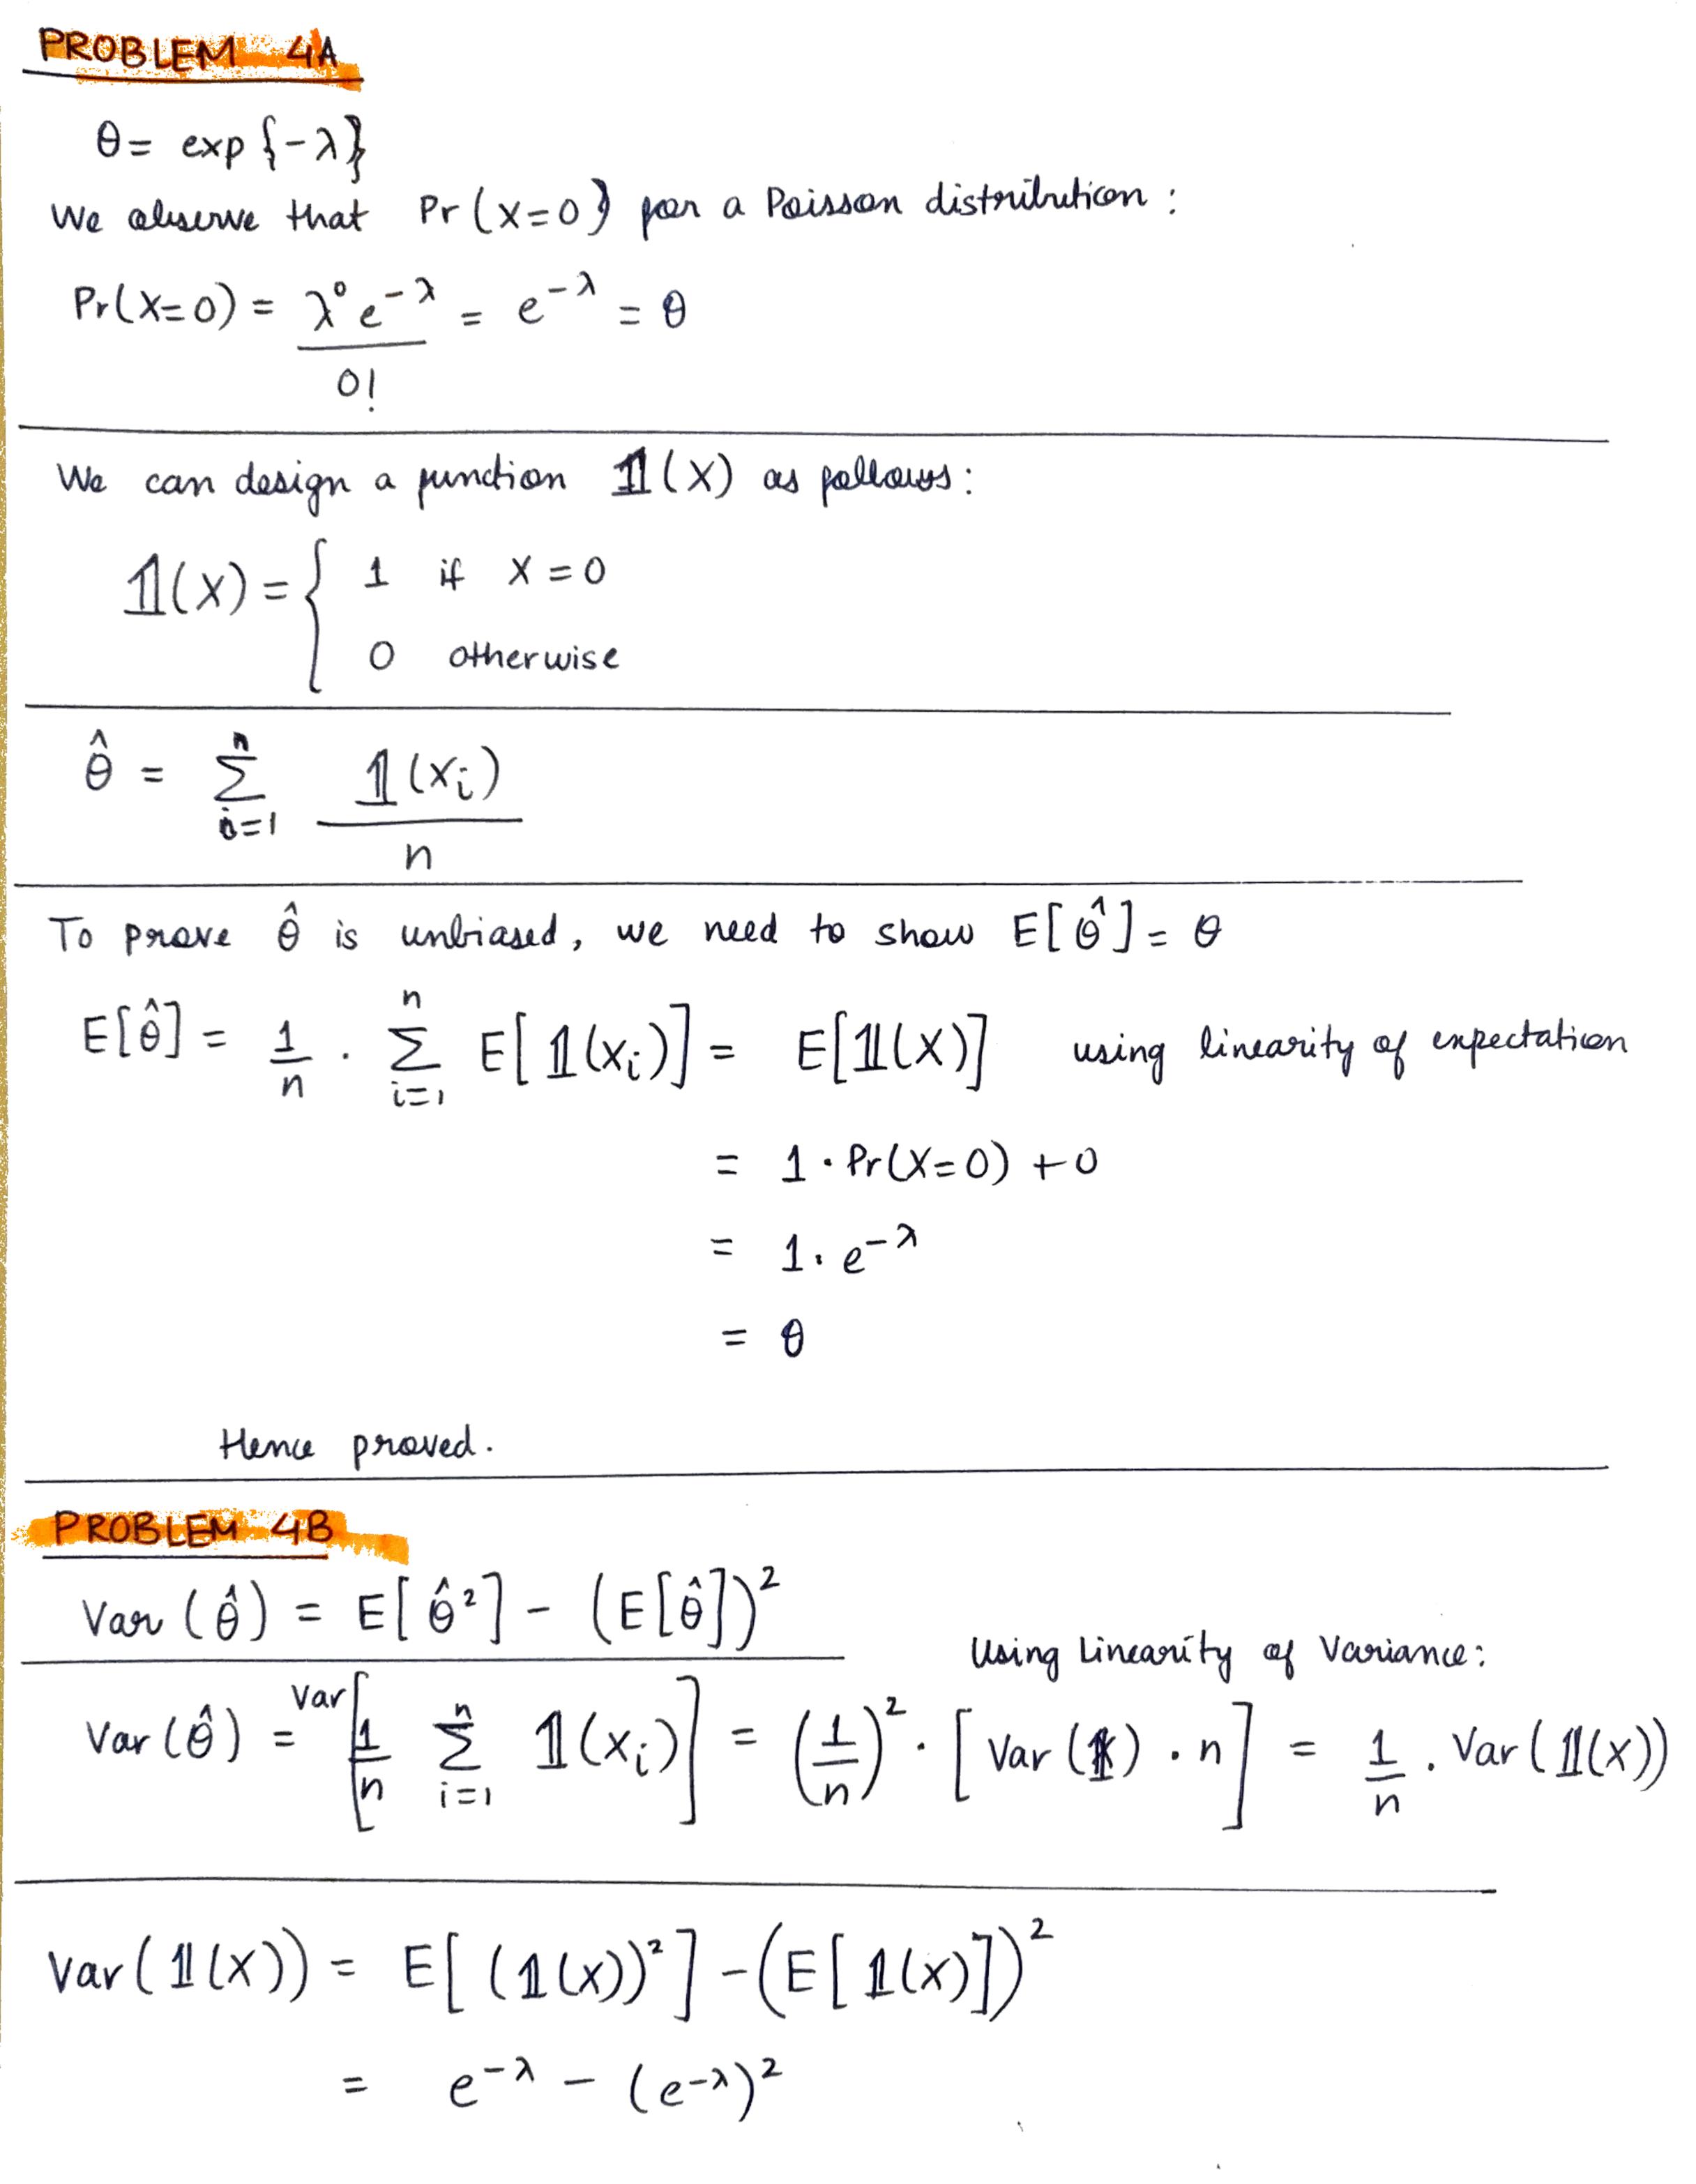 PROBLEM 4A
θ = exp {-λ}
We observe that Pr(X=0) for a Poisson distribution :
Pr(X=0) = λ⁰ e^{-λ} / 0! = e^{-λ} = θ
We can design a function 𝟙(X) as follows:
𝟙(X) = { 1 if X = 0
0 otherwise
θ̂ = Σ_{i=1}^{n} 𝟙(Xi) / n
To prove θ̂ is unbiased, we need to show E[θ̂] = θ
E[θ̂] = 1/n · Σ_{i=1}^{n} E[𝟙(Xi)] = E[𝟙(X)] using linearity of expectation
= 1 · Pr(X=0) + 0
= 1 · e^{-λ}
= θ
Hence proved.
PROBLEM 4B
Var(θ̂) = E[θ̂²] - (E[θ̂])²
Using Linearity of Variance:
Var(θ̂) = Var[1/n Σ_{i=1}^{n} 𝟙(Xi)] = (1/n)² · [Var(𝟙) · n] = 1/n · Var(𝟙(X))
Var(𝟙(X)) = E[(𝟙(X))²] - (E[𝟙(X)])²
= e^{-λ} - (e^{-λ})²